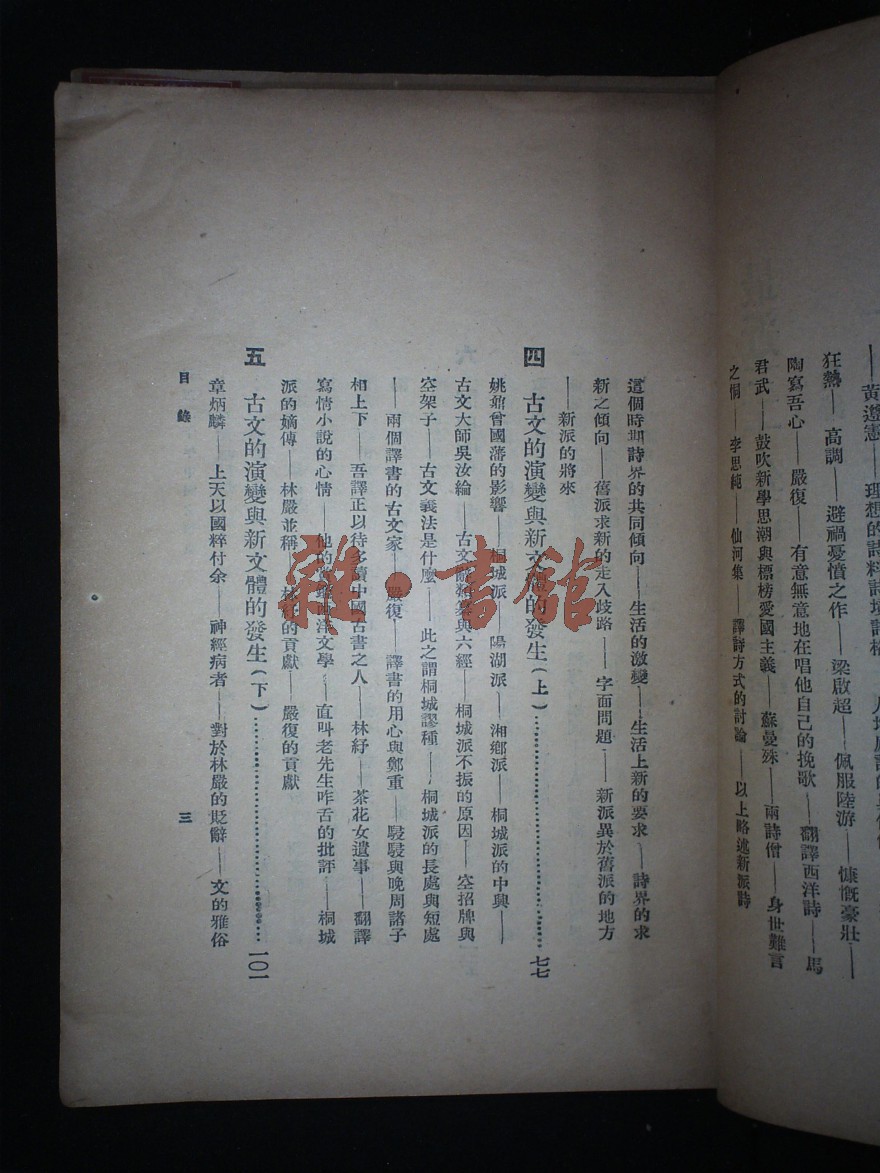 ——黃遵憲——理想的詩料詩境詩格
狂熱——高調——避禍憂憤之作——梁啟超——佩服陸游——慷慨豪壯——
陶寫吾心——嚴復——有意無意地在唱他自己的挽歌——翻譯西洋詩——馬
君武——鼓吹新學思潮與標榜愛國主義——蘇曼殊——兩詩僧——身世難言
之恫——李思純——仙河集——譯詩方式的討論——以上略述新派詩
這個時期詩界的共同傾向——生活的激變——生活上新的要求——詩界的求
新之傾向——舊派求新的走入歧路——字面問題——新派異於舊派的地方
——新派的將來
四 古文的演變與新文體的發生(上)……七七
姚鼐曾國藩的影響——桐城派——陽湖派——湘鄉派——桐城派的中興——
古文大師吳汝綸——古文辭類纂與六經——桐城派不振的原因——空招牌與
空架子——古文義法是什麼——此之謂桐城謬種——桐城派的長處與短處
——兩個譯書的古文家——嚴復——譯書的用心與鄭重——駸駸與晚周諸子
相上下——吾譯正以待多讀中國古書之人——林紓——茶花女遺事——翻譯
寫情小說的心情——他的 西洋文學——直叫老先生咋舌的批評——桐城
派的嫡傳——林嚴並稱——林紓的貢獻——嚴復的貢獻
五 古文的演變與新文體的發生(下)……一〇一
章炳麟——上天以國粹付余——神經病者——對於林嚴的貶辭——文的雅俗
目錄 三
雜·書館